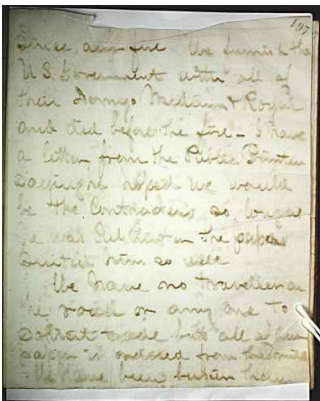 197
Since our fire We furnish the
U.S. Government with all of
their Demy, Medium & Royal
and did before the fire - I have
a letter from the Public Printer
saying he hoped we would
be the Contractors as long as
he was Pub Printer the papers
suited him so well
We have no travellers on
the road or any one to
solicit trade but all of our
paper is ordered from the mill
We have been